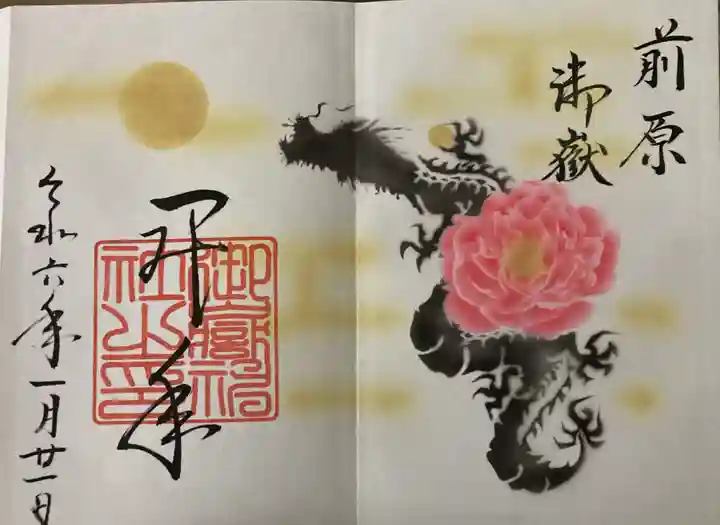 前原
御嶽
辰年
御嶽神
社之印
令和六年一月廿一日